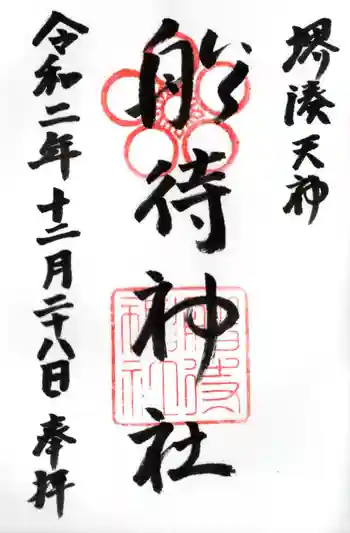 堺湊天神
船待神社
令和二年十二月二十八日 奉拝
船待神社